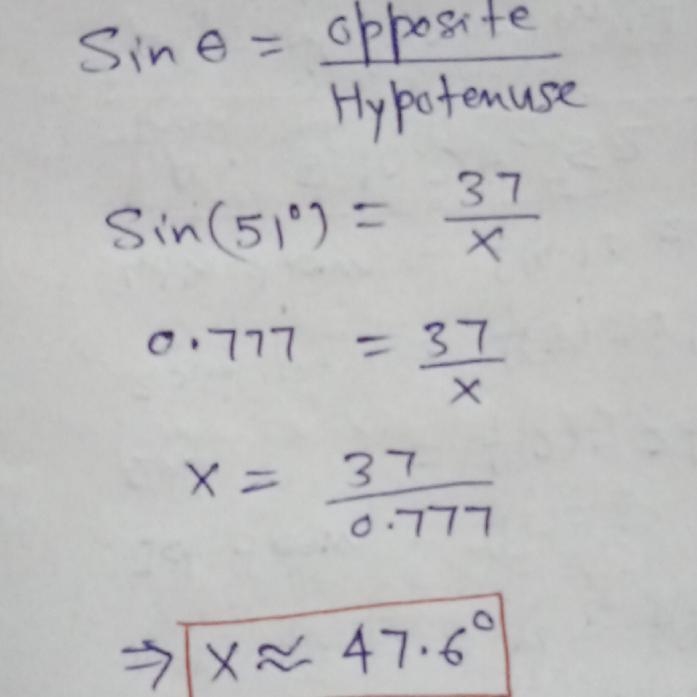 Sin θ = opposite / Hypotenuse
Sin(51°) = 37 / x
0.777 = 37 / x
x = 37 / 0.777
⇒ x ≈ 47.6°